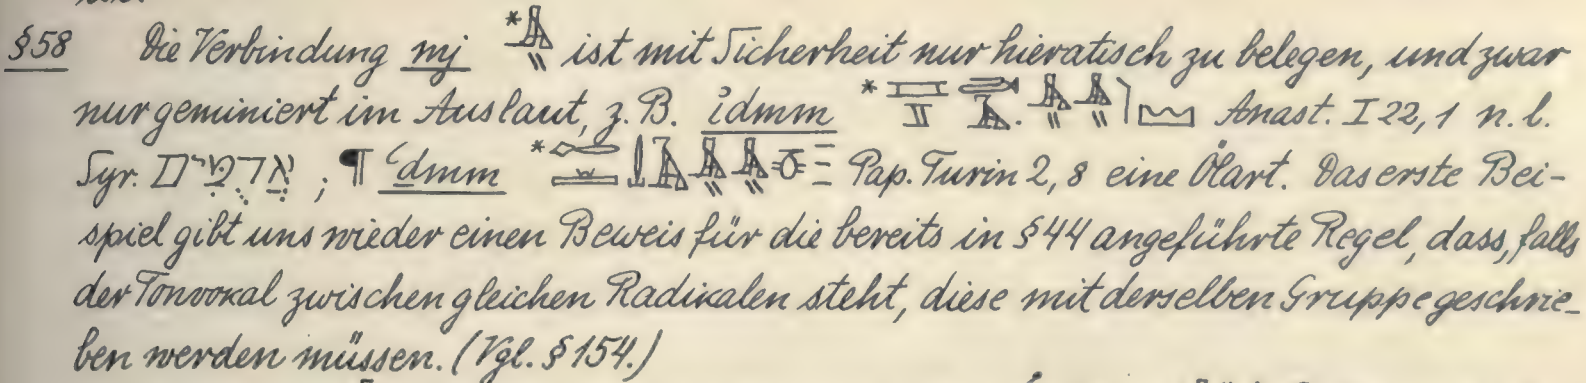 §58 Die Verbindung mj * ist mit Sicherheit nur hieratisch zu belegen, und zwar
nur geminiert im Auslaut, z. B. idmm * Anast. I 22, 1 n. l.
Syr. אֲדֻמִּים ; ¶ ꜥdmm * Pap. Turin 2, 8 eine Ölart. Das erste Bei-
spiel gibt uns wieder einen Beweis für die bereits in §44 angeführte Regel, dass, falls
der Tonvokal zwischen gleichen Radikalen steht, diese mit derselben Gruppe geschrie-
ben werden müssen. (Vgl. §154.)